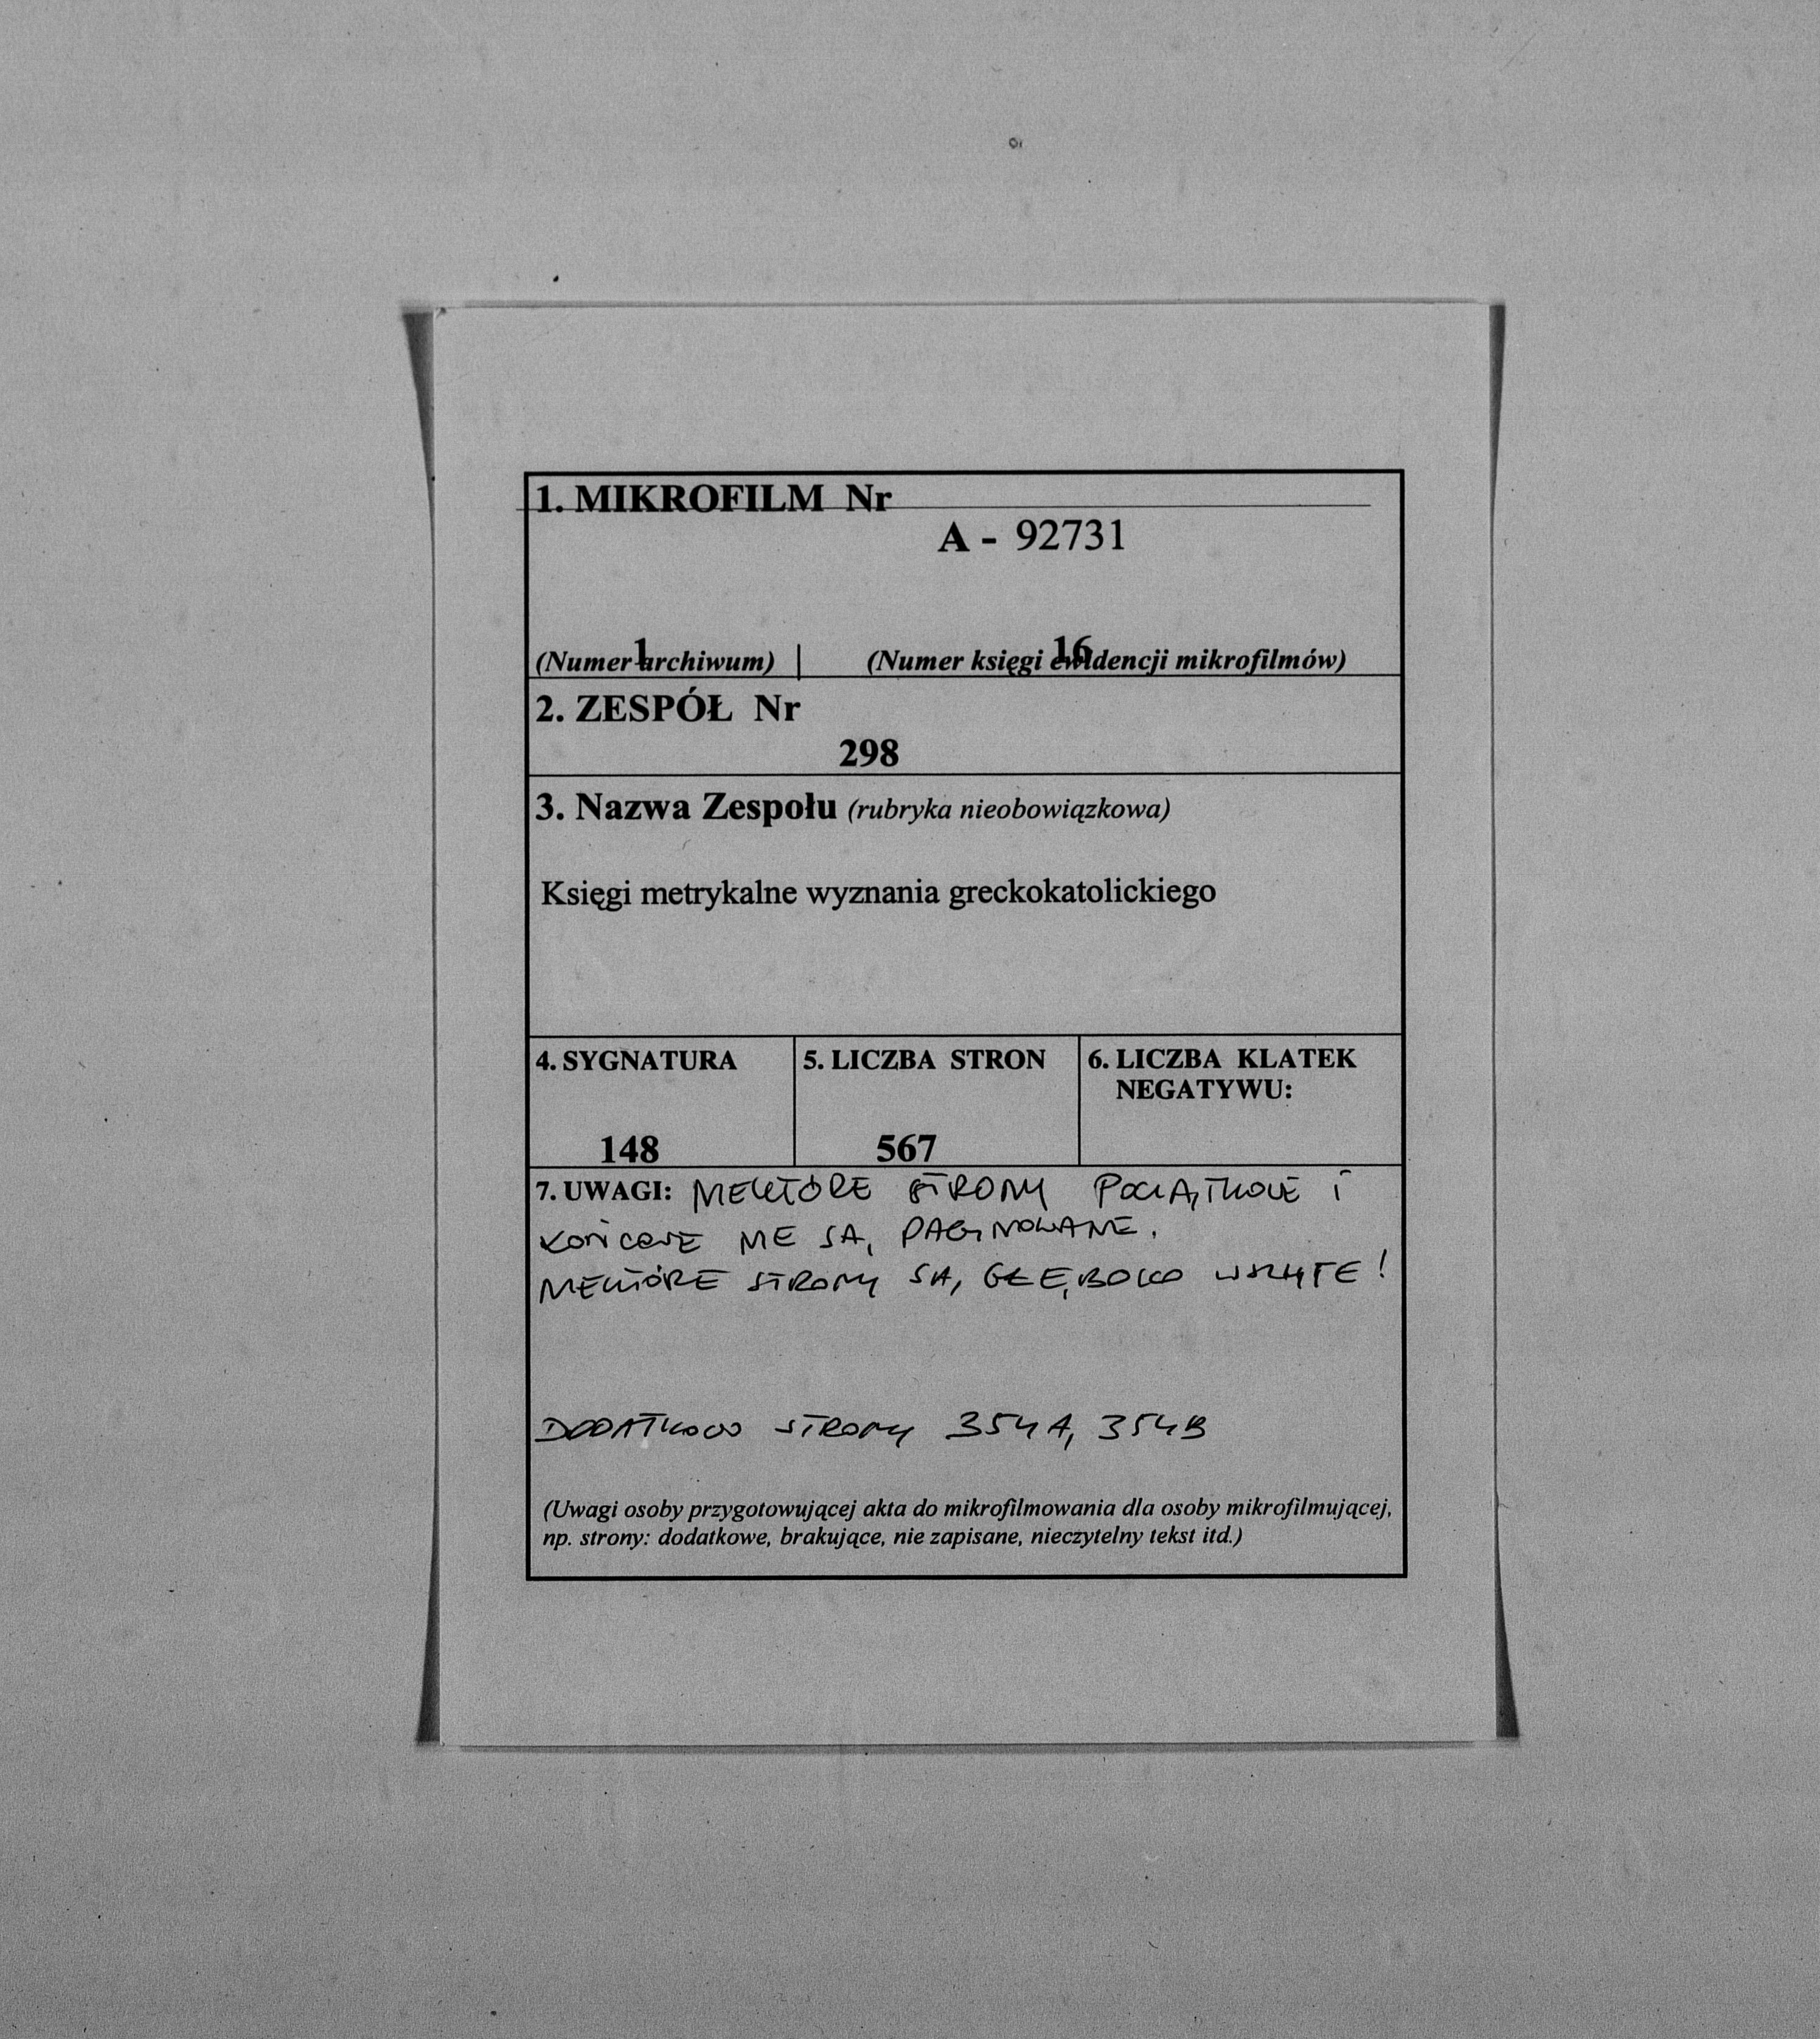 1. MIKROFILM Nr
A - 92731
1 16
(Numer archiwum) | (Numer księgi ewidencji mikrofilmów)
2. ZESPÓŁ Nr
298
3. Nazwa Zespołu (rubryka nieobowiązkowa)
Księgi metrykalne wyznania greckokatolickiego
4. SYGNATURA 5. LICZBA STRON 6. LICZBA KLATEK
NEGATYWU:
148 567
7. UWAGI: NIEKTÓRE STRONY POCZĄTKOWE I
KOŃCOWE NIE SĄ PAGINOWANE.
NIEKTÓRE STRONY SĄ GŁĘBOKO WSZYTE!
DODATKOWO STRONY 354A, 354B
(Uwagi osoby przygotowującej akta do mikrofilmowania dla osoby mikrofilmującej,
np. strony: dodatkowe, brakujące, nie zapisane, nieczytelny tekst itd.)